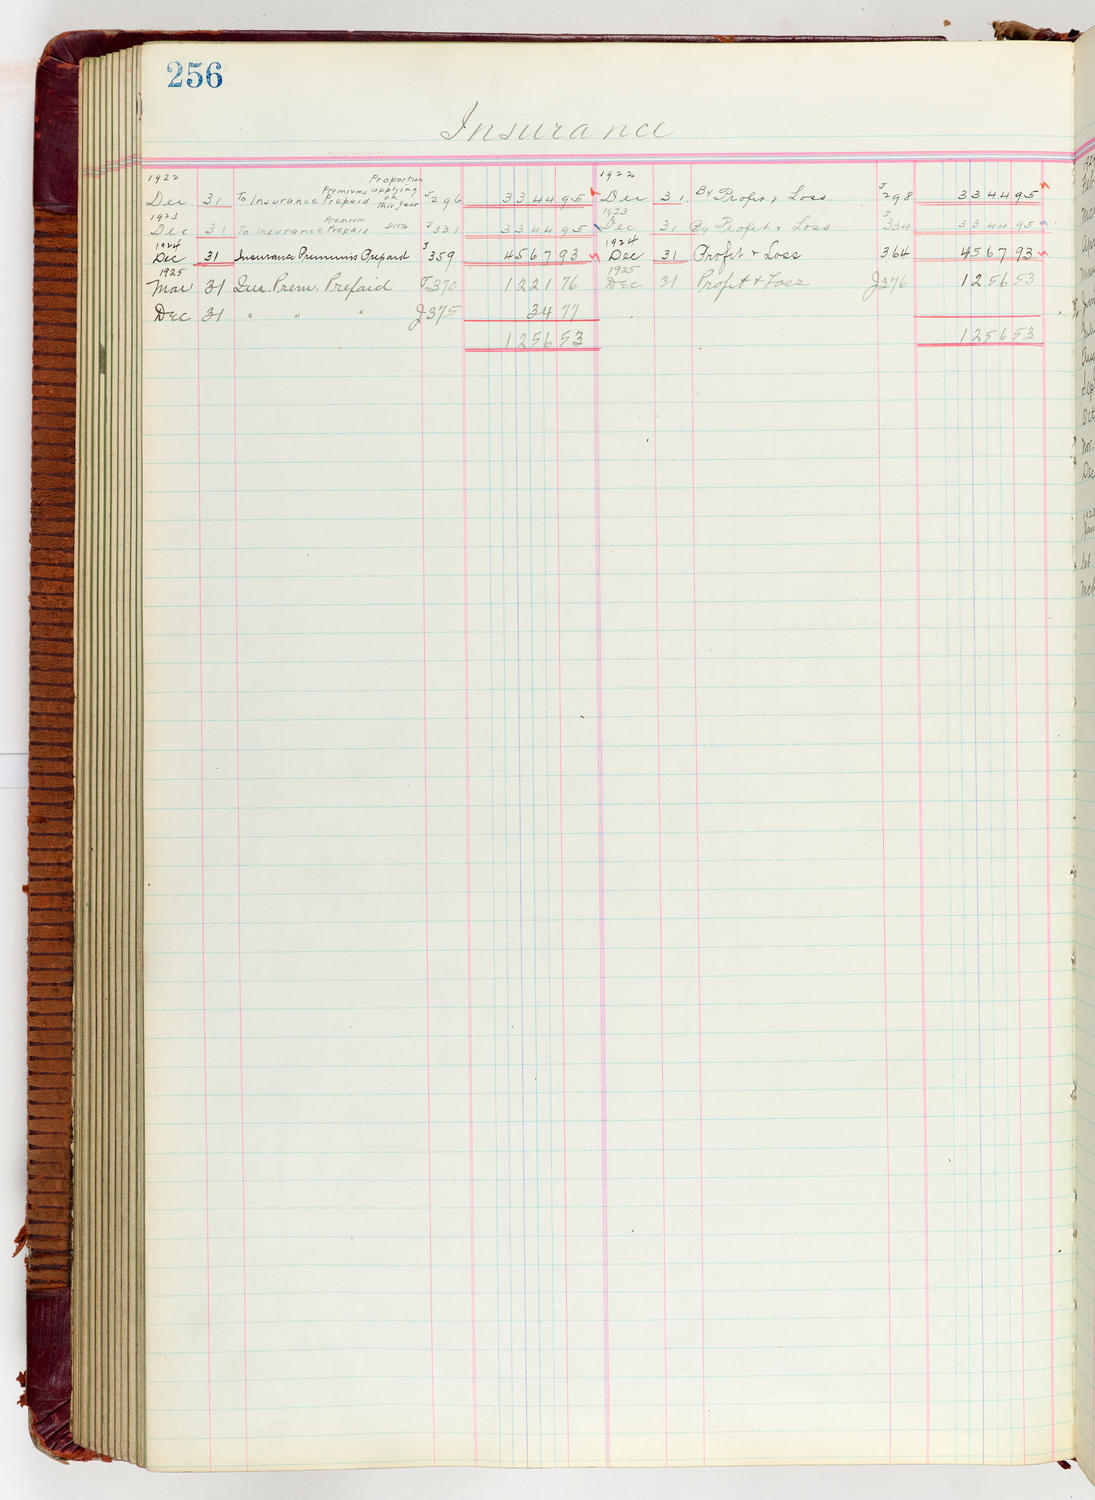 256
Insurance
1922 Proportion 1922
Dec 31 To Insurance Premiums Prepaid applying on This year J296 3344 95 Dec 31 By Profit & Loss J298 3344 95
1923 1923
Dec 31 To Insurance Premium Prepaid Ditto J331 3344 95 Dec 31 By Profit & Loss J334 3344 95
1924 1924
Dec 31 Insurance Premiums Prepaid J359 4567 93 Dec 31 Profit & Loss 364 4567 93
1925 1925
Mar 31 Ins. Prem. Prepaid J370 1221 76 Dec 31 Profit & Loss J376 1256 53
Dec 31 " " " J375 34 77
1256 53 1256 53